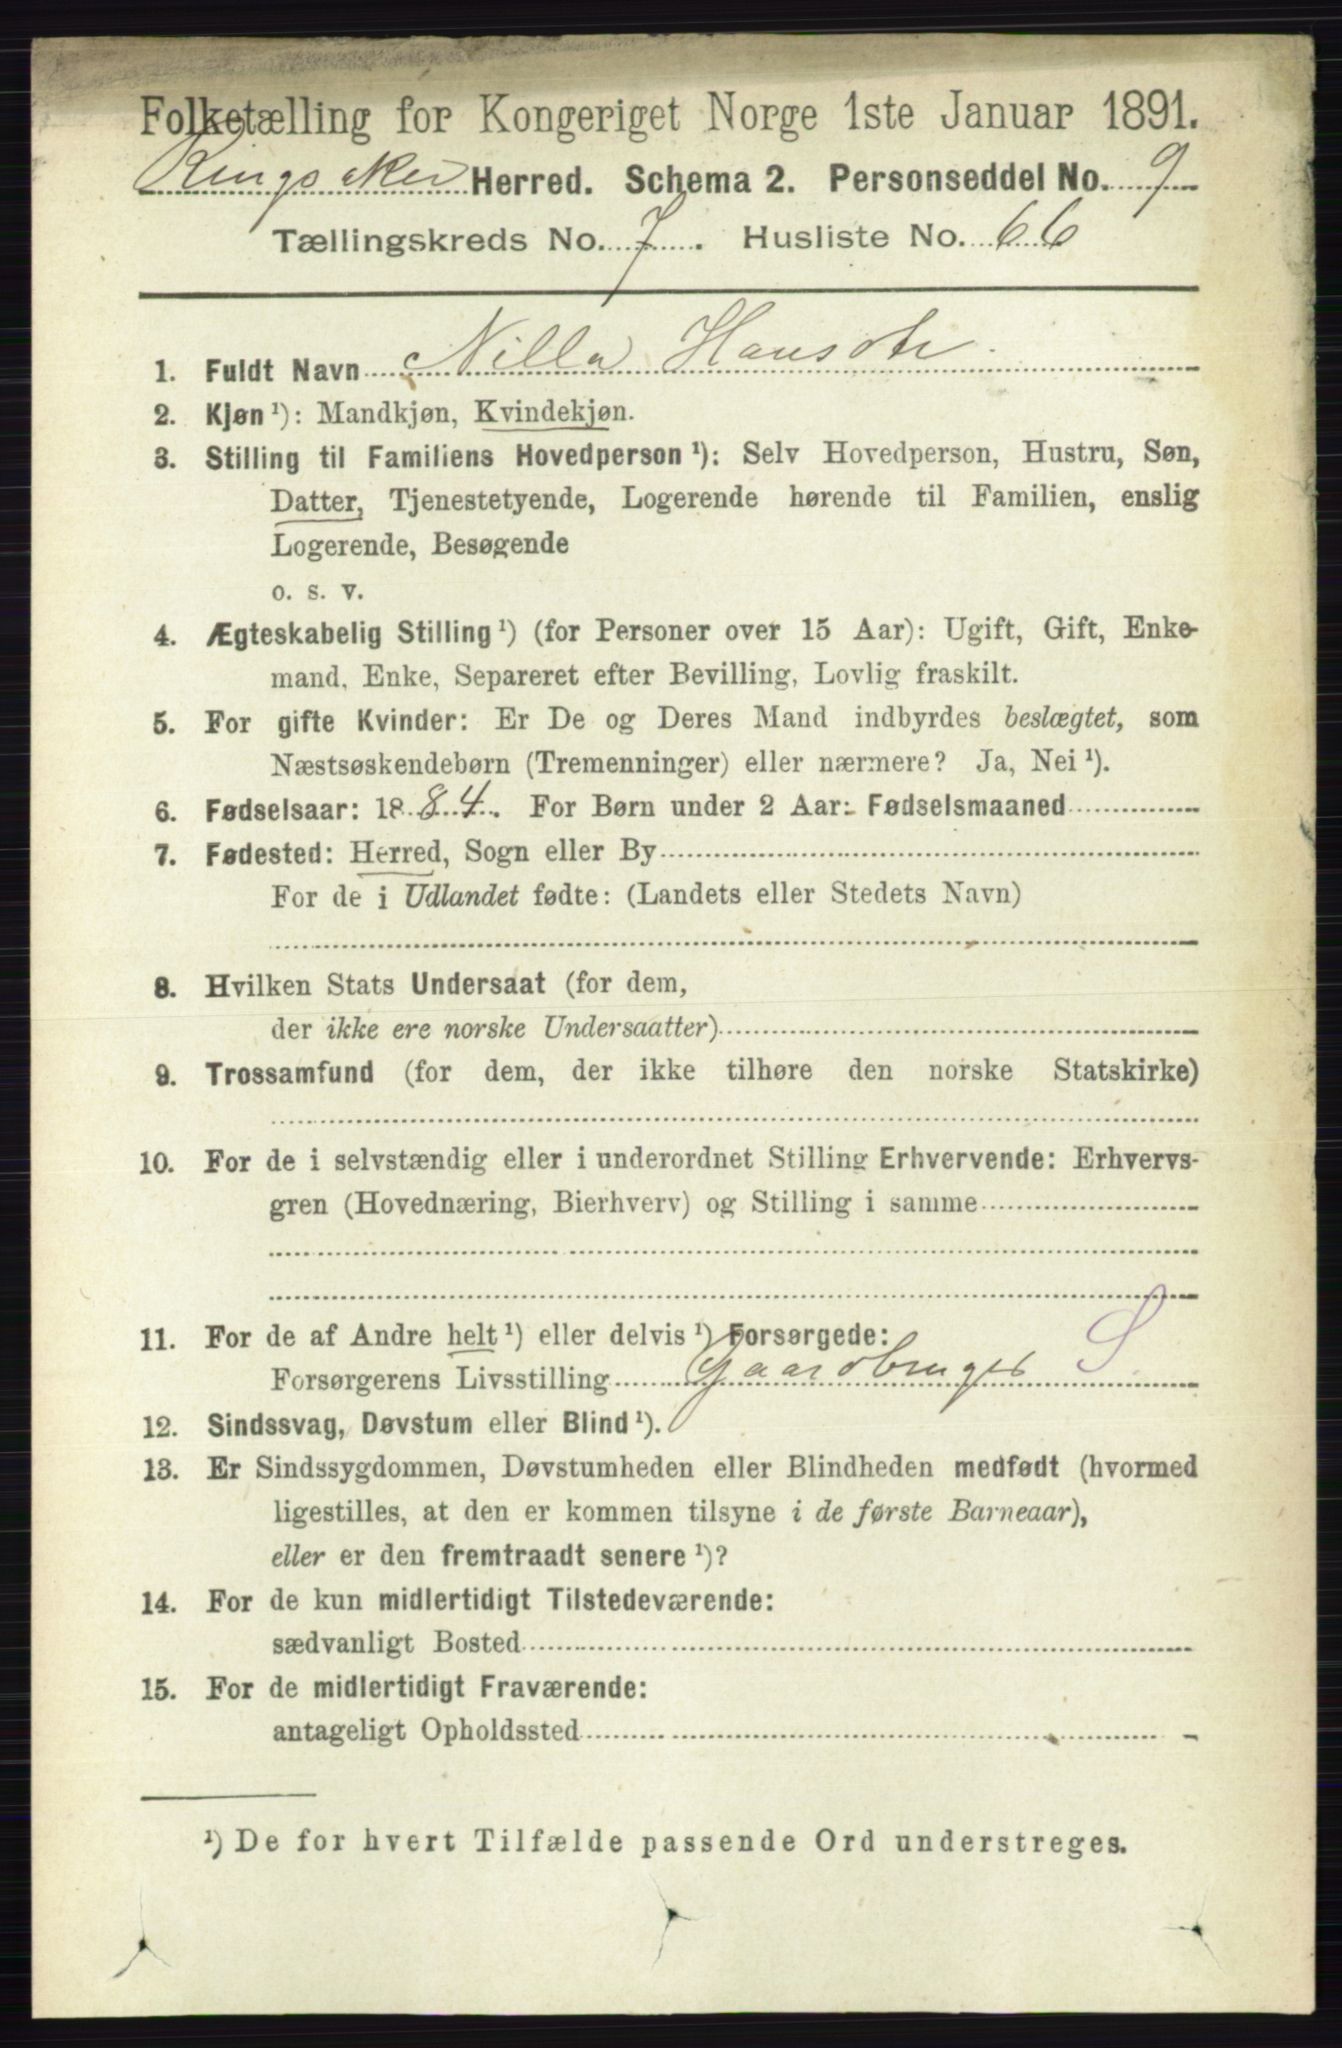 Folketælling for Kongeriget Norge 1ste Januar 1891.
Ringsaker Herred. Schema 2. Personseddel No. 9
Tællingskreds No. 7. Husliste No. 66
1. Fuldt Navn Nilla Hansdtr.
2. Kjøn ¹): Mandkjøn, Kvindekjøn.
3. Stilling til Familiens Hovedperson ¹): Selv Hovedperson, Hustru, Søn,
Datter, Tjenestetyende, Logerende hørende til Familien, enslig
Logerende, Besøgende
o. s. v.
4. Ægteskabelig Stilling ¹) (for Personer over 15 Aar): Ugift, Gift, Enke-
mand, Enke, Separeret efter Bevilling, Lovlig fraskilt.
5. For gifte Kvinder: Er De og Deres Mand indbyrdes beslægtet, som
Næstsøskendebørn (Tremenninger) eller nærmere? Ja, Nei ¹).
6. Fødselsaar: 1884. For Børn under 2 Aar: Fødselsmaaned
7. Fødested: Herred, Sogn eller By
For de i Udlandet fødte: (Landets eller Stedets Navn)
8. Hvilken Stats Undersaat (for dem,
der ikke ere norske Undersaatter)
9. Trossamfund (for dem, der ikke tilhøre den norske Statskirke)
10. For de i selvstændig eller i underordnet Stilling Erhvervende: Erhvervs-
gren (Hovednæring, Bierhverv) og Stilling i samme
11. For de af Andre helt ¹) eller delvis ¹) Forsørgede:
Forsørgerens Livsstilling Gaardbruger S
12. Sindssvag, Døvstum eller Blind ¹).
13. Er Sindssygdommen, Døvstumheden eller Blindheden medfødt (hvormed
ligestilles, at den er kommen tilsyne i de første Barneaar),
eller er den fremtraadt senere ¹)?
14. For de kun midlertidigt Tilstedeværende:
sædvanligt Bosted
15. For de midlertidigt Fraværende:
antageligt Opholdssted
¹) De for hvert Tilfælde passende Ord understreges.